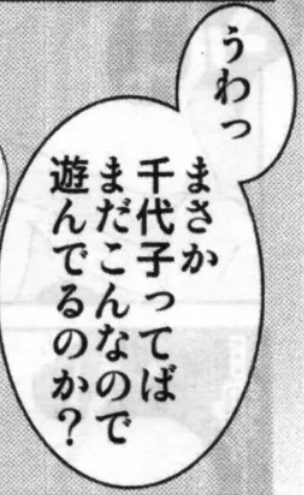 うわっ
まさか
千代子ってば
まだこんなので
遊んでるのか？